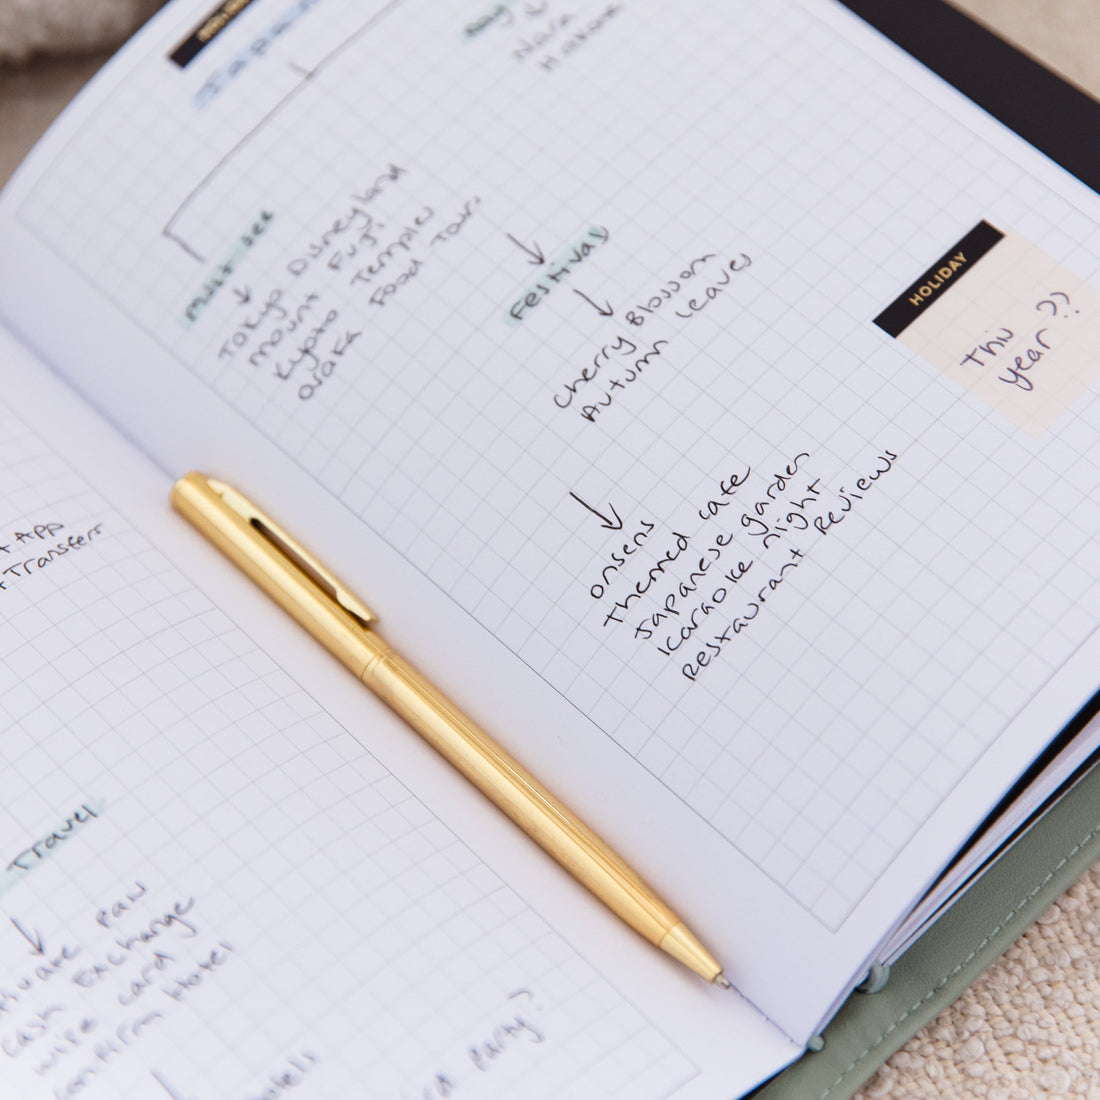 JAPAN
Nara
Must see
Tokyo Disneyland
Mount Fuji
Kyoto Temples
Osaka Food Tours
Festivals
Cherry Blossom
Autumn leaves
HOLIDAY
This
year ??
onsens
themed cafe
Japanese garden
Karaoke night
Restaurant Reviews
App
Transfers
Travel
Cash Exchange
wise card
Hotel
party?